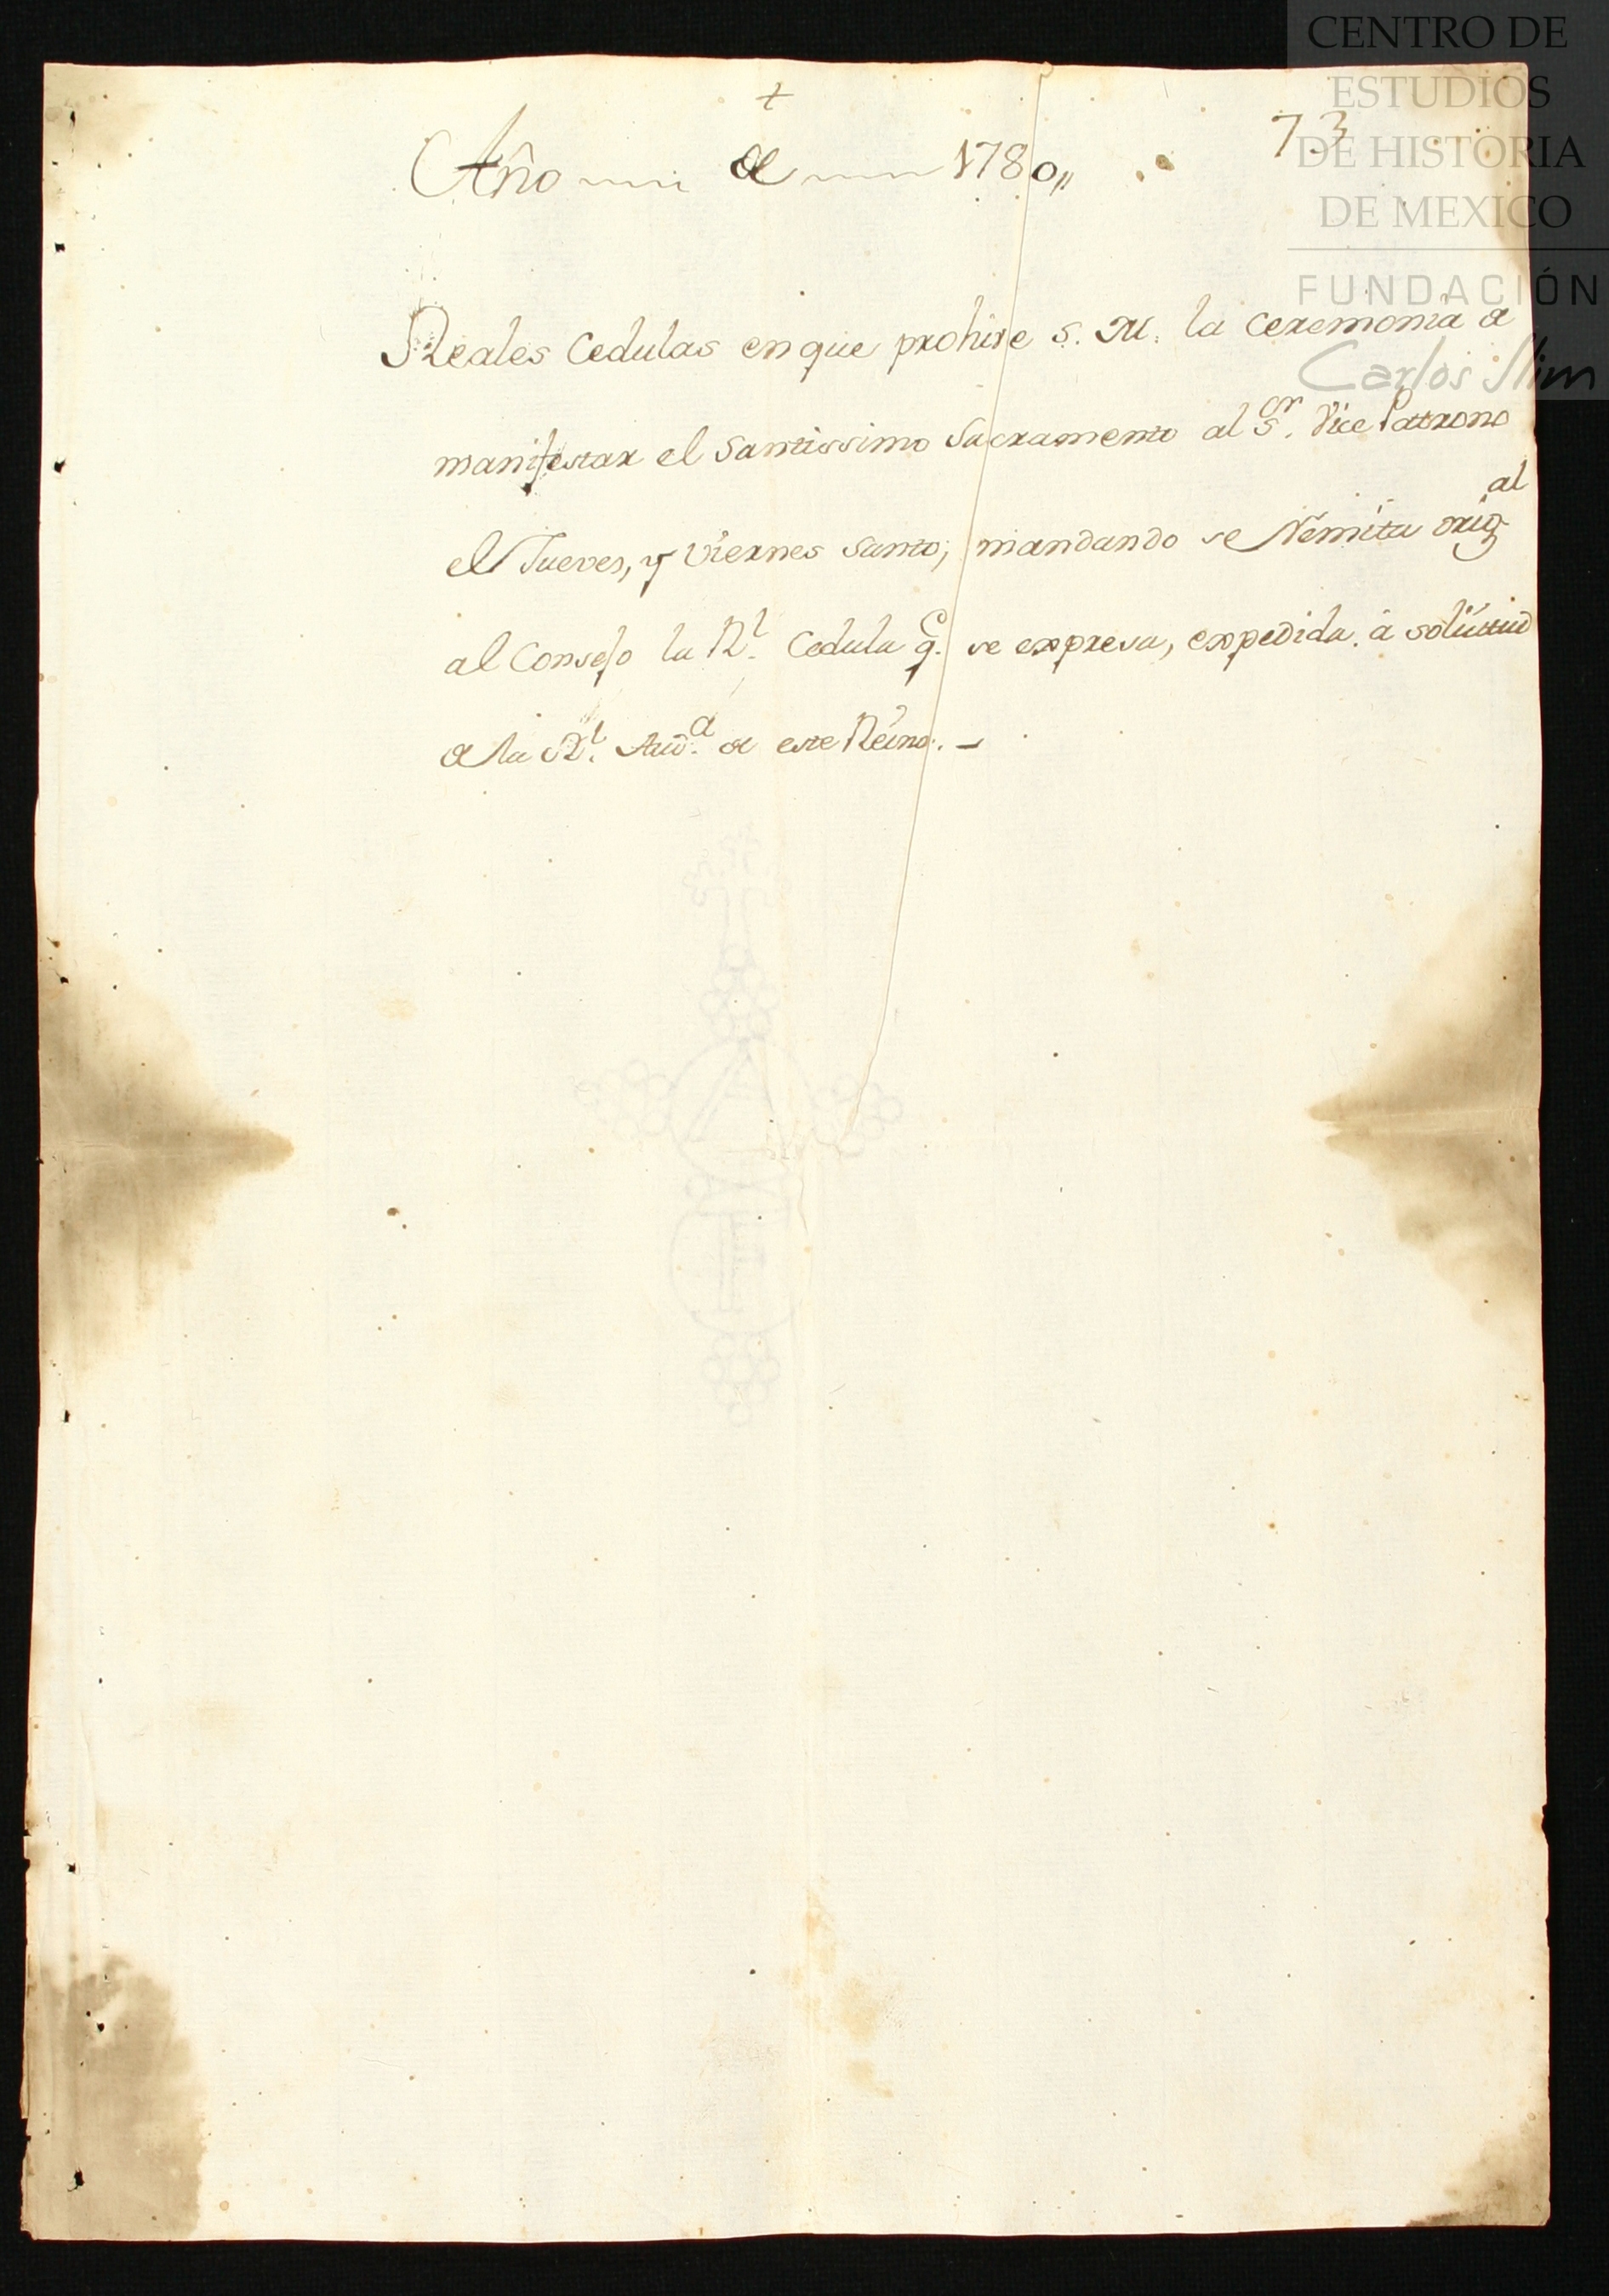 +
Año de 1780,,
73
Reales Cedulas en que prohive S. M. la ceremonia de
manifestar el Santissimo Sacramento al S.or Vice Patrono
el Jueves, y Viernes Santo; mandando se Remita orig.al
al Consejo la R.l Cedula q.e se expresa, expedida à solicitud
de la R.l Aud.a de este Reino. —
CENTRO DE
ESTUDIOS
DE HISTORIA
DE MEXICO
FUNDACIÓN
Carlos Slim